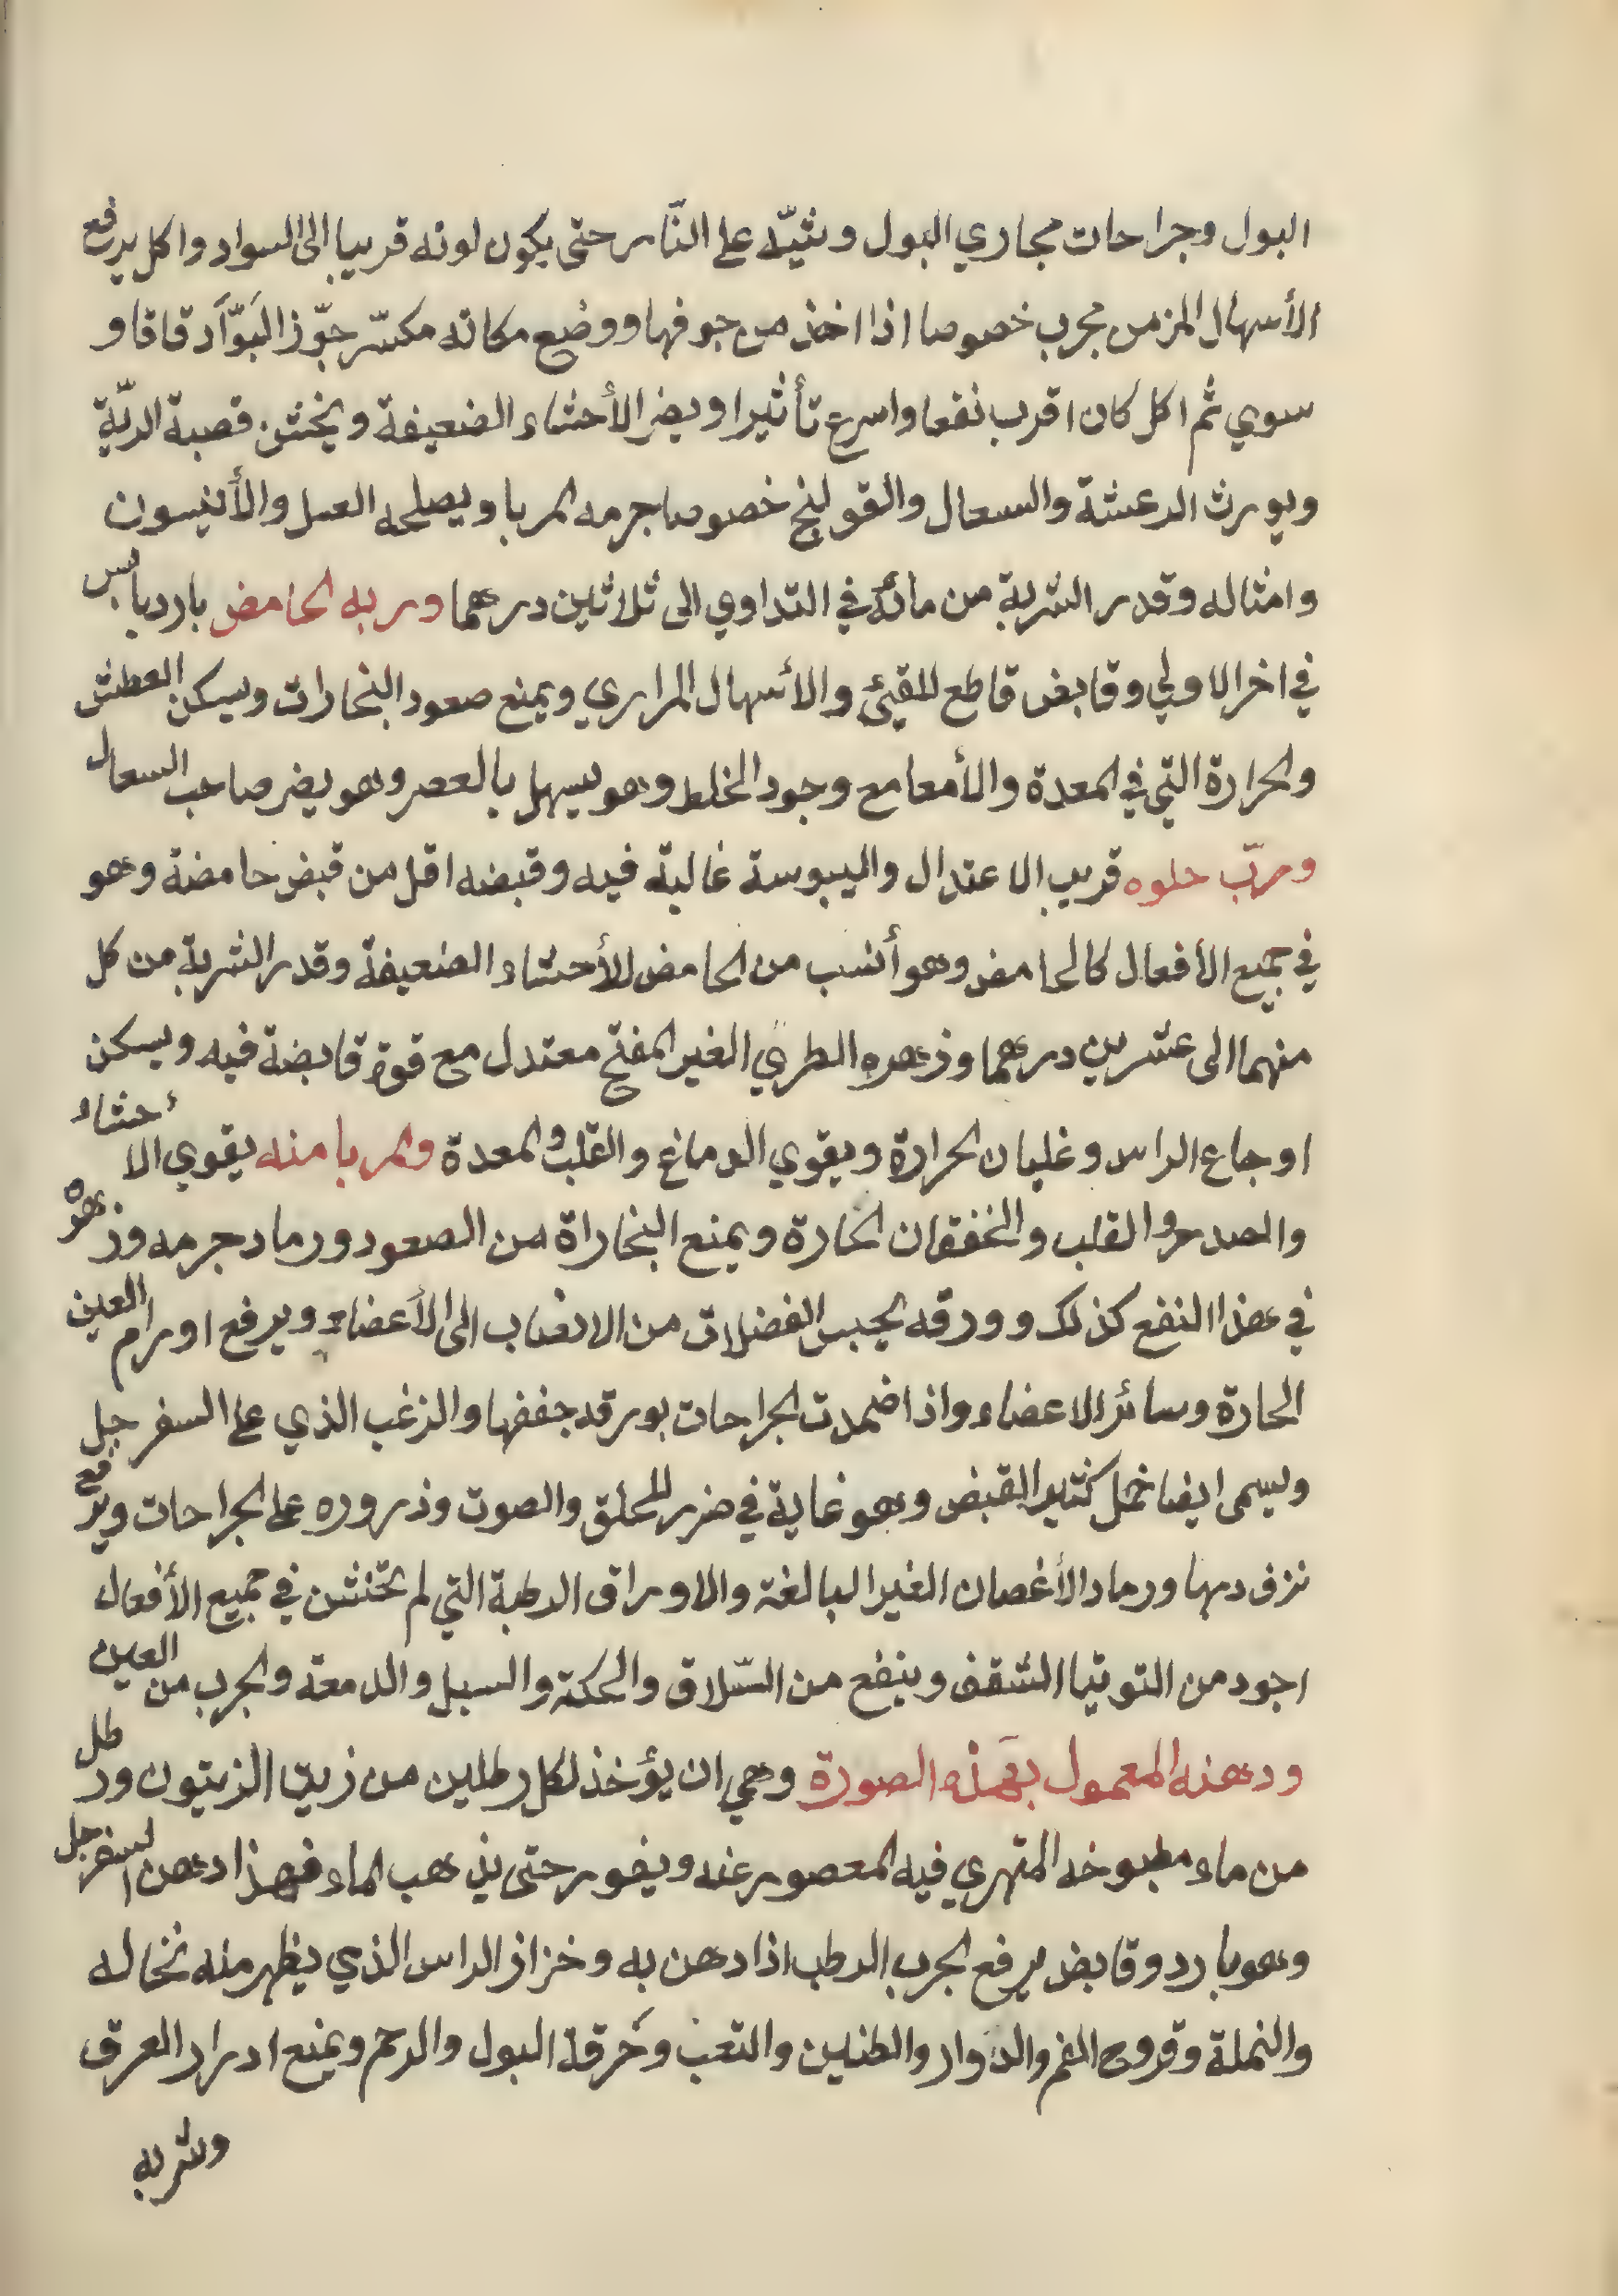 البول وجراحات مجاري البول وشيّه على النّار حتى يكون لونه قريبا الى السواد واكل يرفع
الأسهال المزمن مجرب خصوصا اذا اخذ من جوفها ووضع مكانه مكسّر جّوز البَوّآَ دقاقا و
سوي ثم اكل كان اقرب نفعا واسرع تأثيرا ويضر الأحشاء الضعيفة ويخشن قصبة الريّة
ويورث الرعشة والسعال والقولنج خصوصا جرمه المربا ويصلحه العسل والأنيسون
وامثاله وقدر الشربة من مائه في التداوي الى ثلاثين درهما وربه الحامض بارد يابس
في اخر الاولي وقابض قاطع للقيئ والأسهال المراري ويمنع صعود البخارات ويسكن العطش
والحرارة التي في المعدة والأمعا مع وجود الخلط وهو يسهل بالعصر وهو يضر صاحب السعال
وربّ حلوه قريب الاعتدال واليبوسة غالبة فيه وقبضه اقل من قبض حامضة وهو
في جميع الأفعال كالحامض وهو أنسب من الحامض للأحشاء الضعيفة وقدر الشربة من كل
منهما الى عشرين درهما وزهره الطري الغير المفتح معتدل مع قوة قابضة فيه ويسكن
اوجاع الراس وغليان الحرارة ويقوي الدماغ والقلب والمعدة والمربا منه يقوي الاحشاء
والصدر والقلب والخفقان الحارة ويمنع البخاراة من الصعود ورماد جرمه وزهره
في هذا النفع كذلك وورقه يحبس الفضلات من الانصاب الى الأعضاء ويرفع اورام العين
الحارة وسائر الاعضاء واذا ضمدت الجراحات بورقه جففها والزغب الذي على السفرجل
ويسمى ايضا خمل كثير القبض وهو غاية في ضرر للحلق والصوت وذروره على الجراحات ويرفع
نزف دمها ورماد الأغصان الغير البالغة والاوراق الرطبة التي لم تخشن في جميع الأفعال
اجود من التوتيا الشقف وينفع من السّلاق والحكة والسبل والدمعة والجرب من العين
ودهنه المعمول بهَذه الصورة وهي ان يؤخذ لكل رطلين من زيت الزيتون ورطل
من ماء مطبوخه المتهري فيه المعصور عنه ويفور حتى يذهب الماء فهذا دهن السفرجل
وهو بارد وقابض يرفع الجرب الرطب اذا دهن به وخزاز الراس الذي يظهر منه نخاله
والنملة وقروح الفم والدوار والطنين والتعب وحَرقة البول والرحم ويمنع ادرار العرق
وشربه